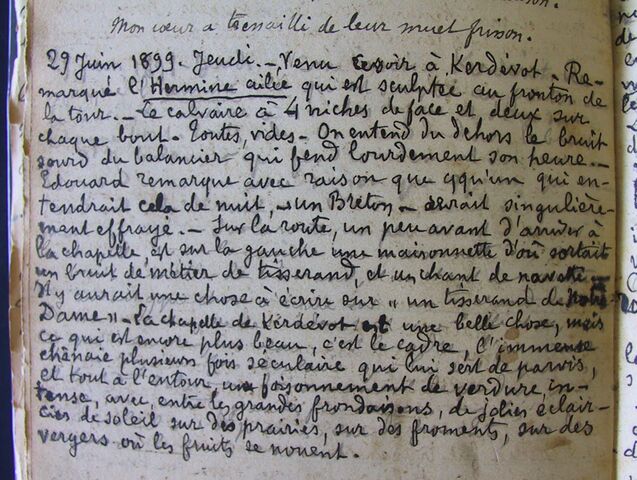 Mon cœur a tressailli de leur muet frisson.
29 Juin 1899. Jeudi. — Venu ce soir à Kerdévot. Re-
marqué l'Hermine ailée qui est sculptée au fronton de
la tour. — Le calvaire à 4 niches de face et deux sur
chaque bout. Toutes, vides. On entend du dehors le bruit
sourd du balancier qui fend lourdement son heure. —
Édouard remarque avec raison que qqu'un qui en-
tendrait cela de nuit, — un Breton — serait singulière-
ment effrayé. — Sur la route, un peu avant d'arriver à
la chapelle, est sur la gauche une maisonnette d'où sortait
un bruit de métier de tisserand, et un chant de navette —
Il y aurait une chose à écrire sur " un tisserand de Notre
Dame " — La chapelle de Kerdévot est une belle chose, mais
ce qui est encore plus beau, c'est le cadre, l'immense
chênaie plusieurs fois séculaire qui lui sert de parvis,
et tout à l'entour, un foisonnement de verdure, in-
tense, avec, entre les grandes frondaisons, de jolies éclair-
cies de soleil sur des prairies, sur des froments, sur des
vergers où les fruits se nouent.